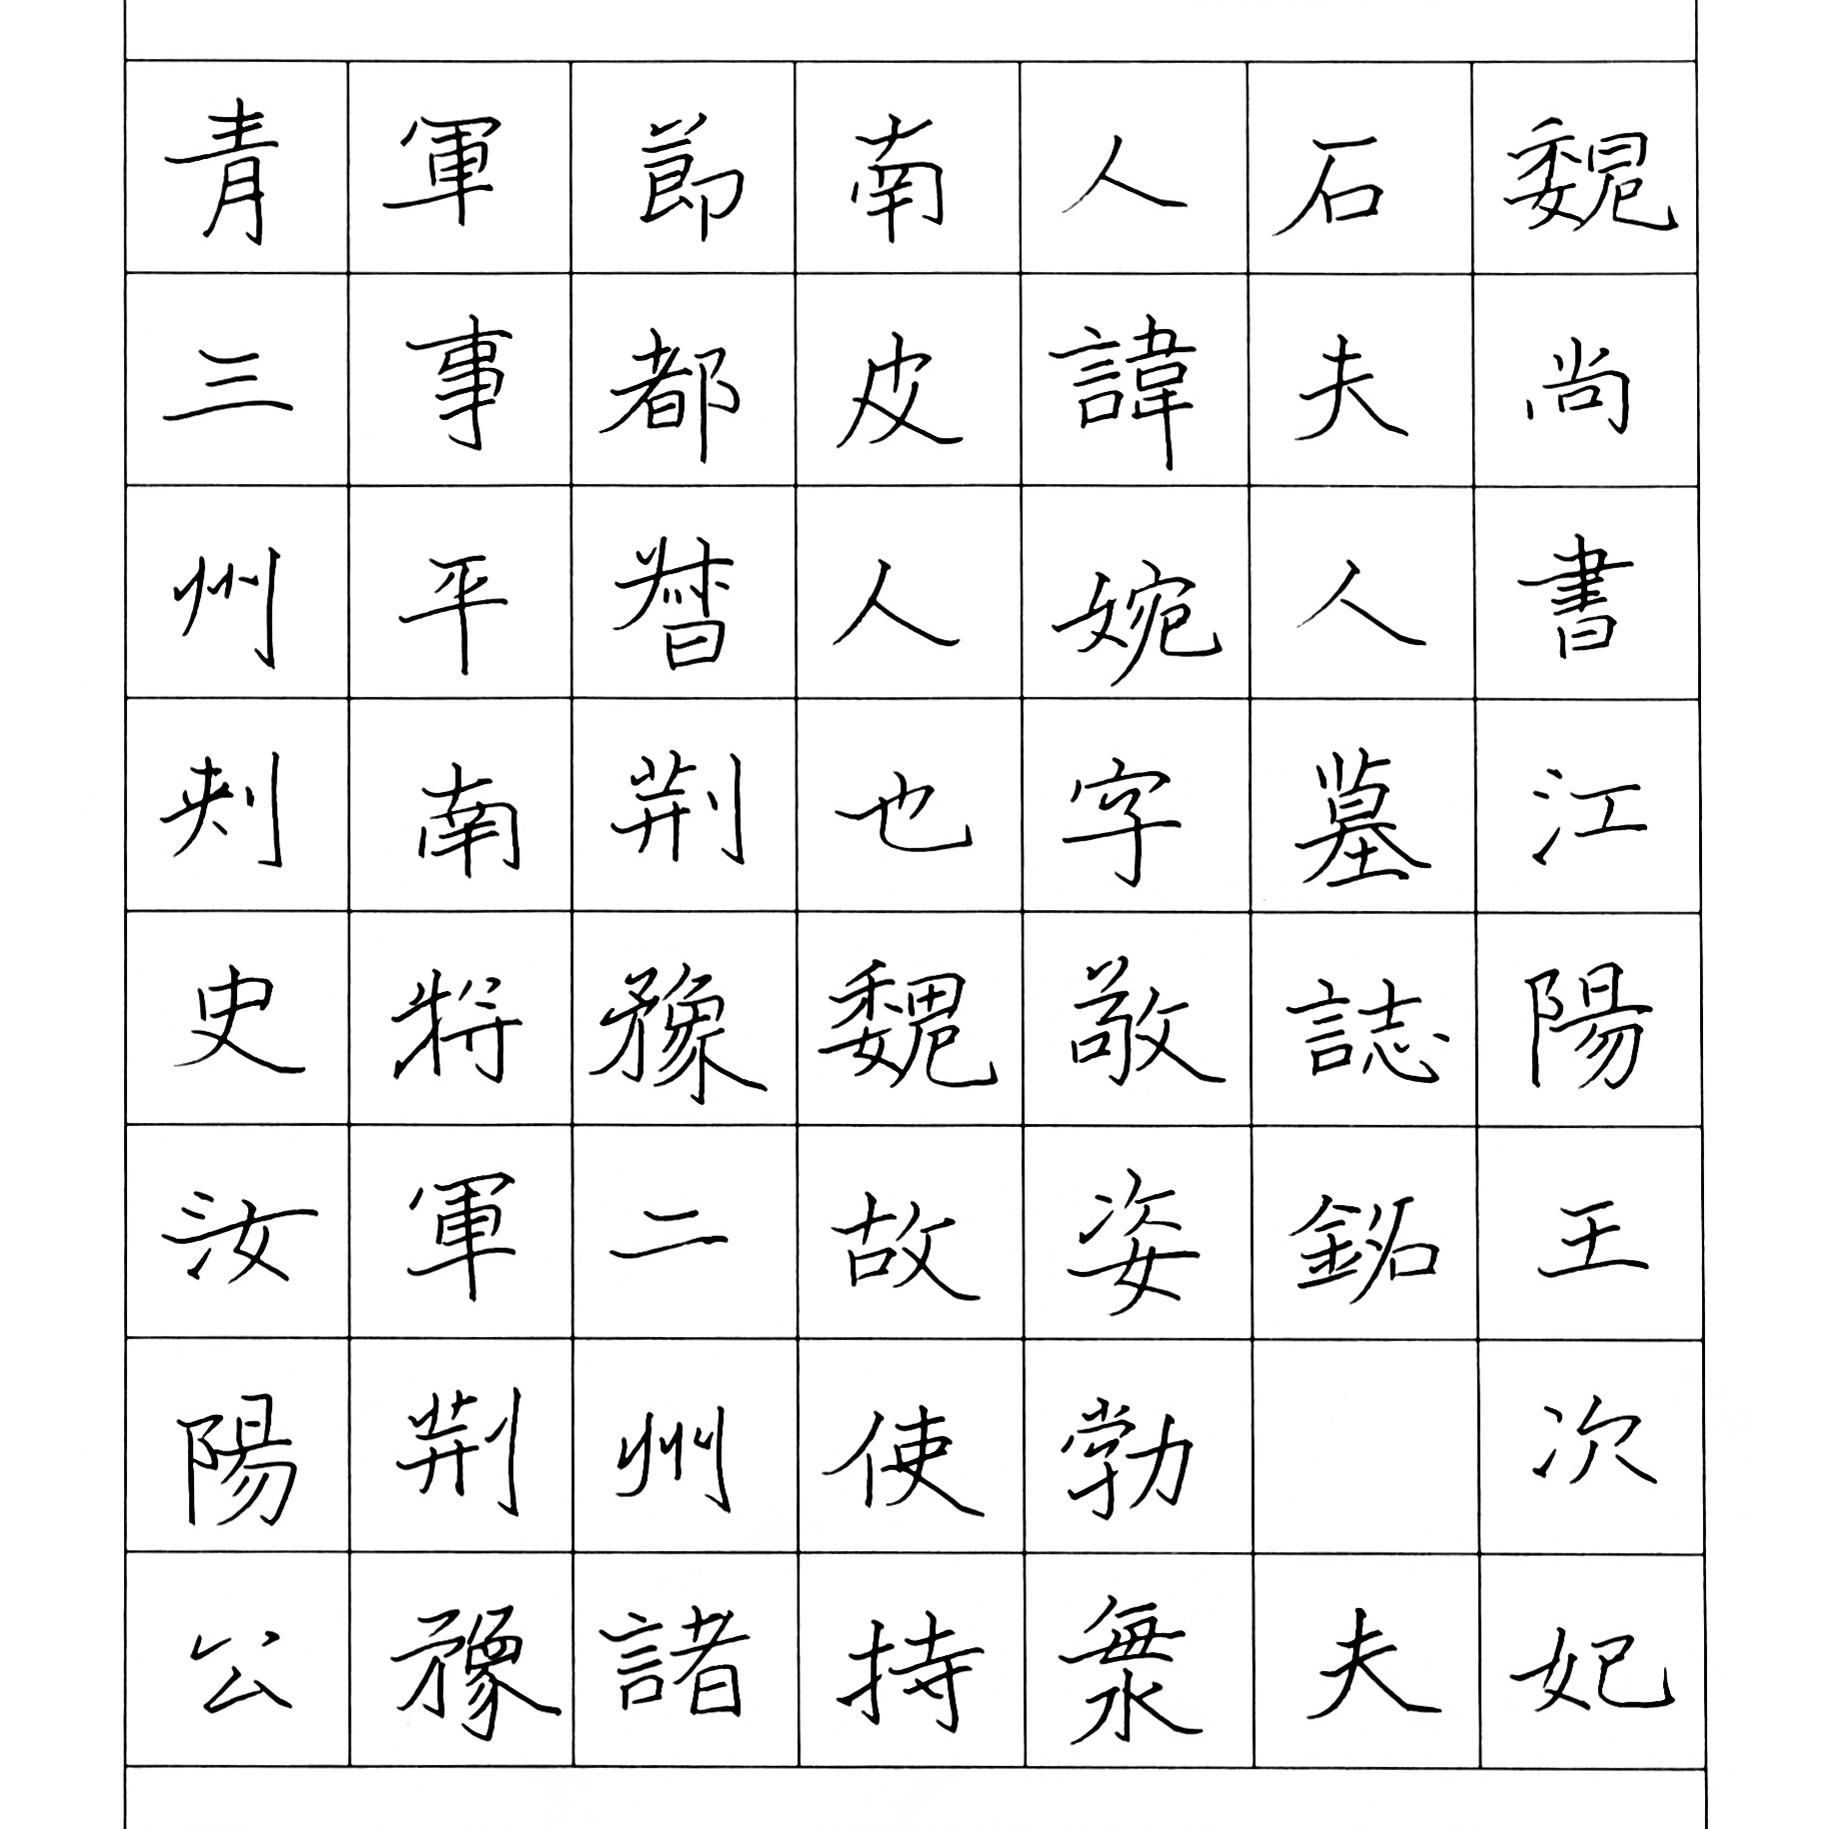 魏尚書江陽王次妃
石夫人墓誌銘 夫
人諱婉字敬姿勃海
南皮人也魏故使持
節都督荊豫二州諸
軍事平南將軍荊豫
青三州刺史汝陽公